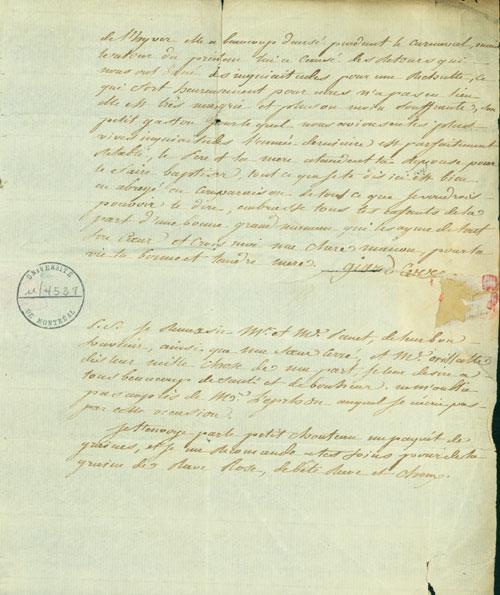 de l'hyver elle a beaucoup dansé pendant le carnaval, mais
le retour du printems lui a causé des retours qui
nous ont donné des inquiétudes pour une Rechutte, ce
qui fort heureusement pour nous n'a pas eu lieu
elle est très maigrie et plus ou moin souffrante, son
petit gaston pour le quel nous avions eu les plus
vives inquiétudes l'année derniere est parfaitement
rétabli, le Pere et la mere attendent ta reponse pour
le faire baptiser, tout ce que je te dis ici est bien
en abregé en comparaison de tout ce que je voudrois
pouvoir te dire, embrasse tous tes enfants de la
part d'une bonne grand maman qui les ayme de tout
son Cœur et Crois moi ma chere maman pour la
vie ta bonne et tendre mere
P.S. je Remercie Mr. et Md. de leur bon
souvenir, ainsi que ma Sœur Cerré, et Md.
dis leur mille choses de ma part je leur desire a
tous beaucoup de santé et de bonheur, ne m'oublie
pas auprès de Mr. auquel je n'écris pas
par cette occasion.
je t'envoye par le petit chouteau un paquet de
graines, et je me recommande a tes soins pour de la
graine de Rave Rose, de bete Rave et choux.
UNIVERSITÉ
DE MONTRÉAL